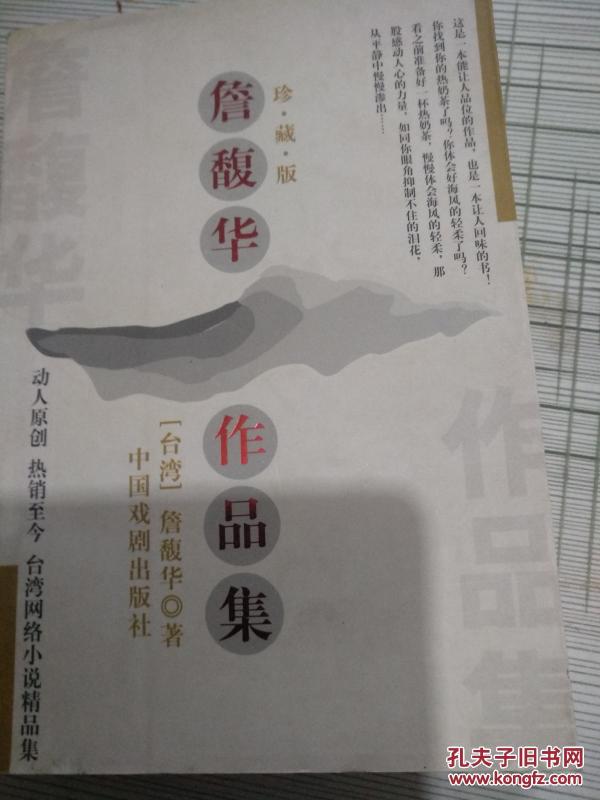 这是一本能让人品位的作品，也是一本让人回味的书！
你找到你的热奶茶了吗？你体会好海风的轻柔了吗？
看之前准备好一杯热奶茶，慢慢体会海风的轻柔，那
股感动人心的力量，如同你眼角抑制不住的泪花，
从平静中慢慢渗出……
珍·藏·版
詹馥华
作品集
［台湾］詹馥华◎著
中国戏剧出版社
动人原创 热销至今 台湾网络小说精品集
詹馥华
作品集
孔夫子旧书网
www.kongfz.com